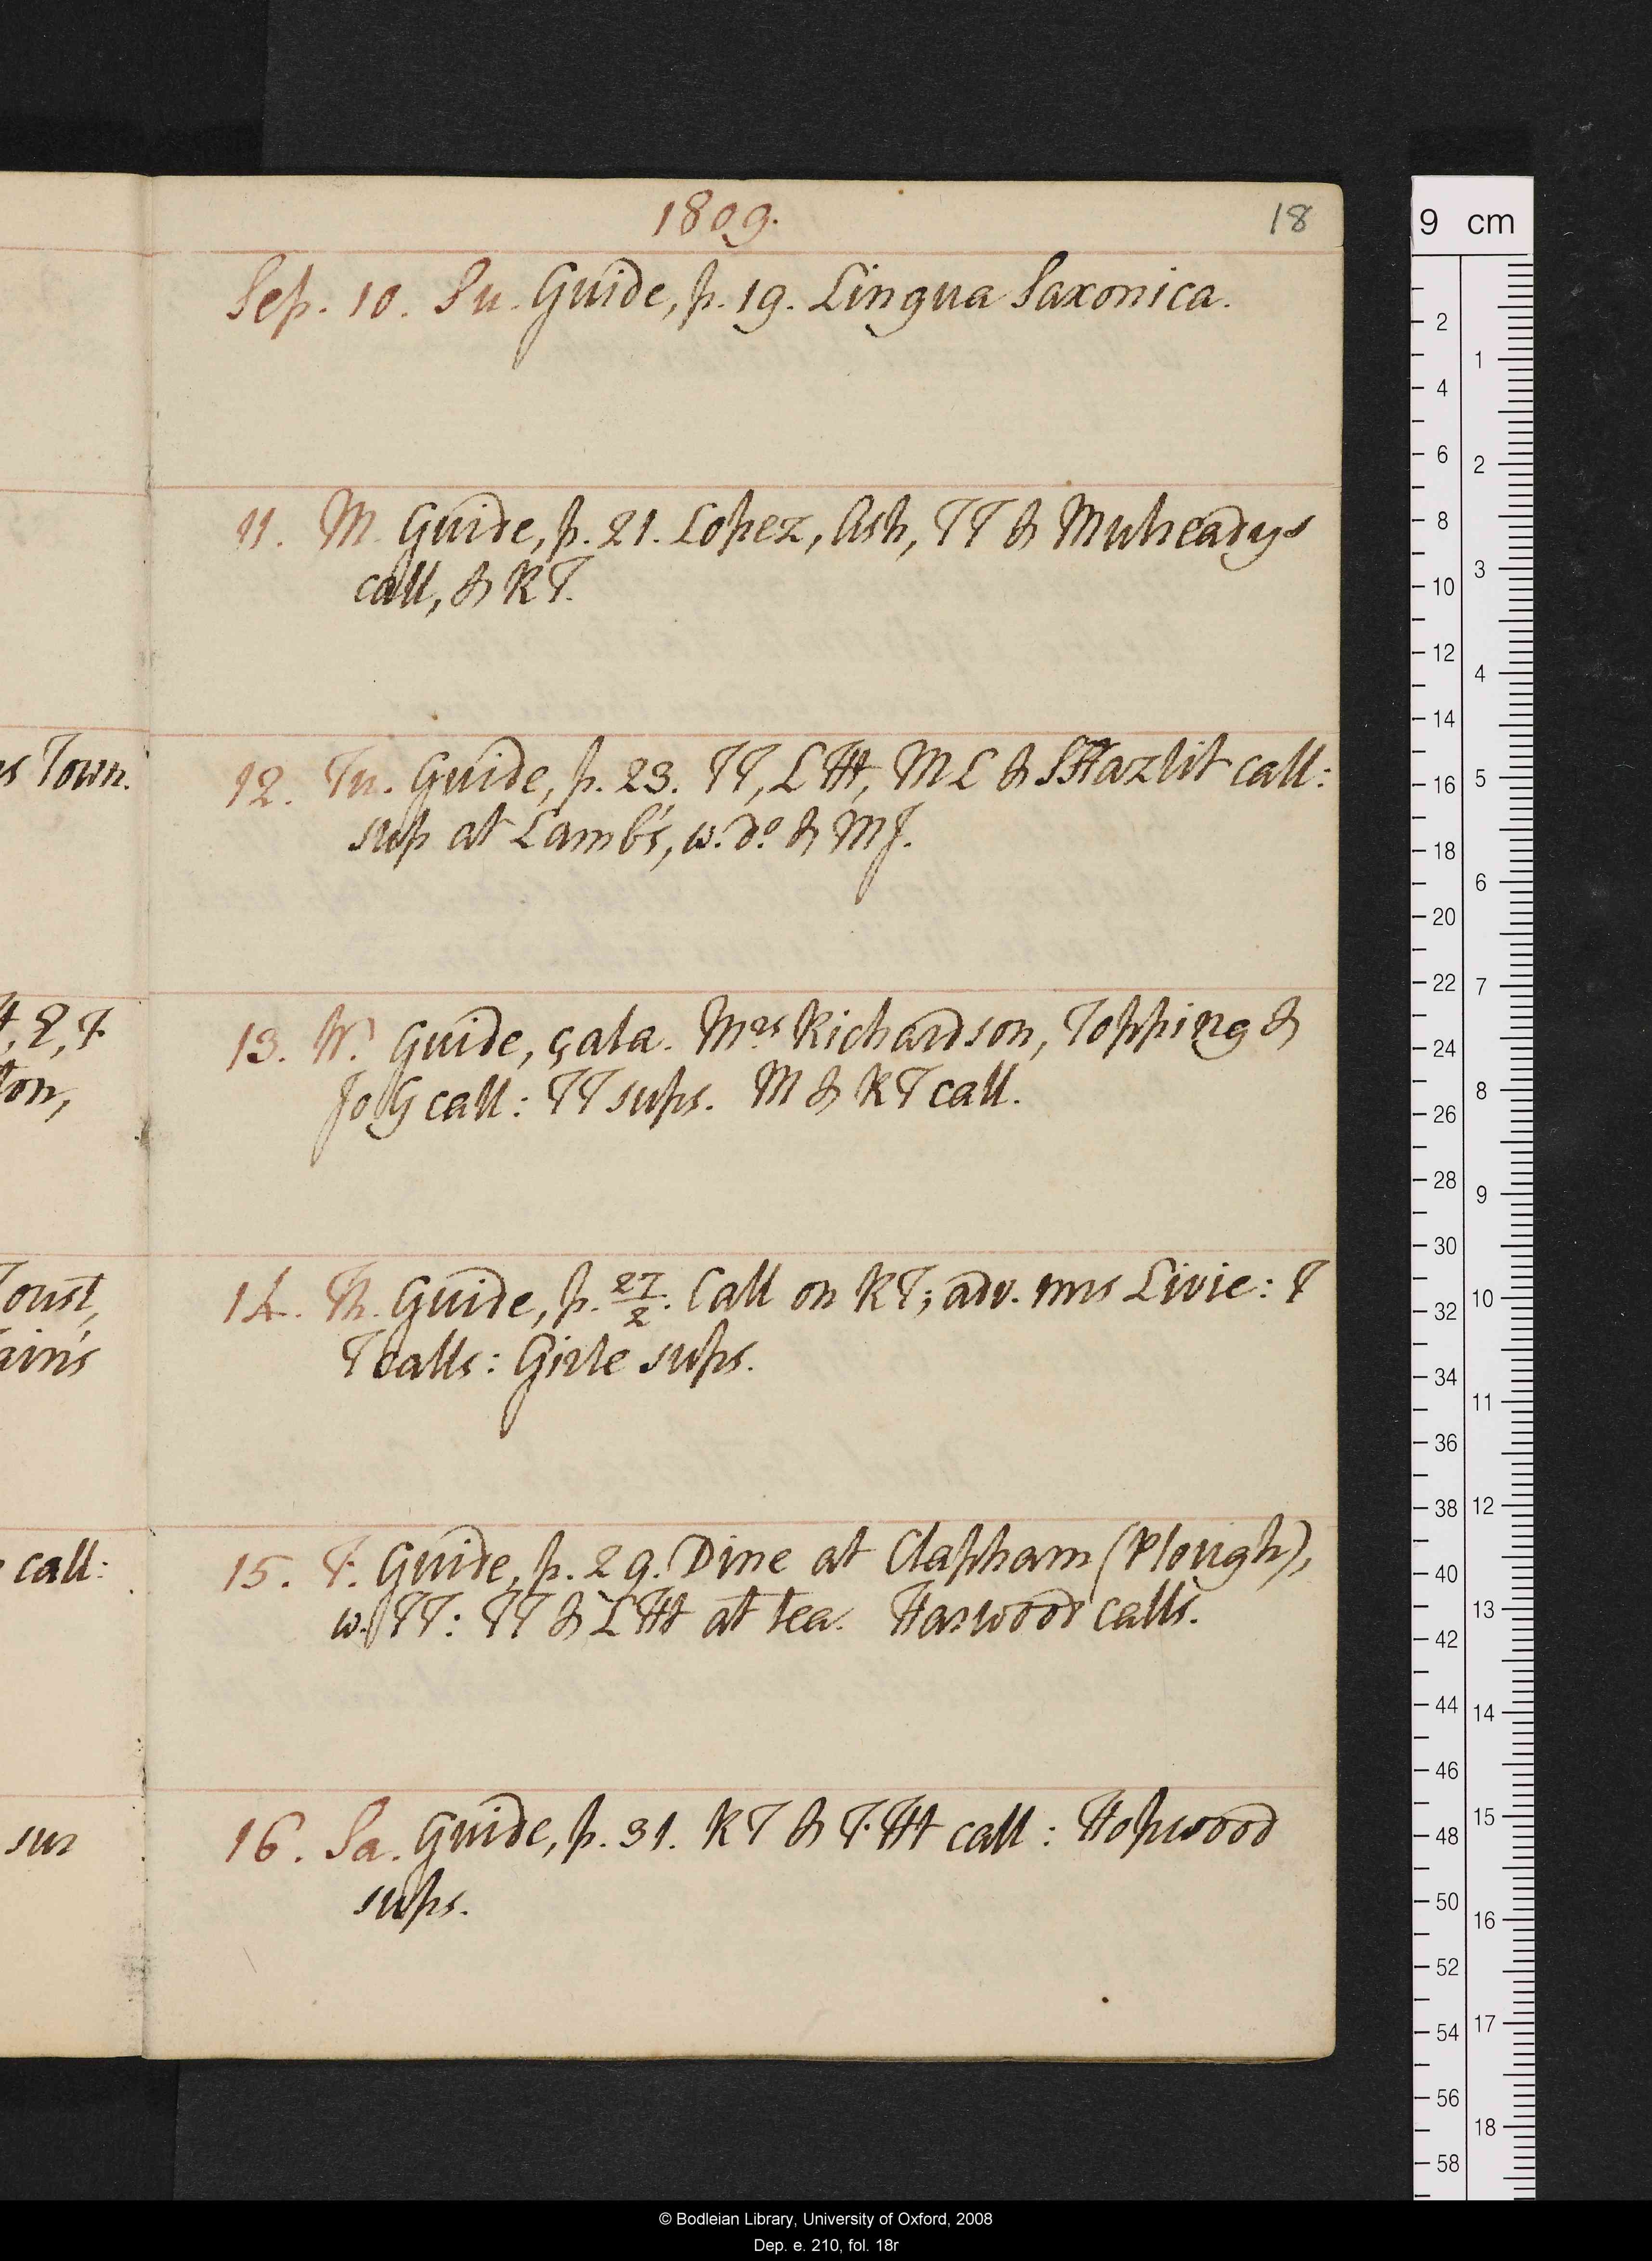 1809.
18
Sep. 10. Su. Guide, p. 19. Lingua Saxonica.
11. M. Guide, p. 21. Lopez, Ash, TT & Mulreadys
call, & KT.
12. Tu. Guide, p. 23. TT, L Ht, ML & SHazlit call:
sup at Lamb's, w. do. & MJ.
13. W. Guide, çala. Mrs Richardson, Topping &
JoG call: TT sups. M & KT call.
14. Th. Guide, p. 27/2. Call on KT; adv. mrs Livie: T
T calls: Girle sups.
15. F. Guide, p. 29. Dine at Clapham (Plough),
w. TT: TT & L Ht at tea. Harwood calls.
16. Sa. Guide, p. 31. KT & F. Ht call: Hopwood
sups.
Town.
call:
9 cm
2
4
6
8
10
12
14
16
18
20
22
24
26
28
30
32
34
36
38
40
42
44
46
48
50
52
54
56
58
1
2
3
4
5
6
7
8
9
10
11
12
13
14
15
16
17
18
© Bodleian Library, University of Oxford, 2008
Dep. e. 210, fol. 18r